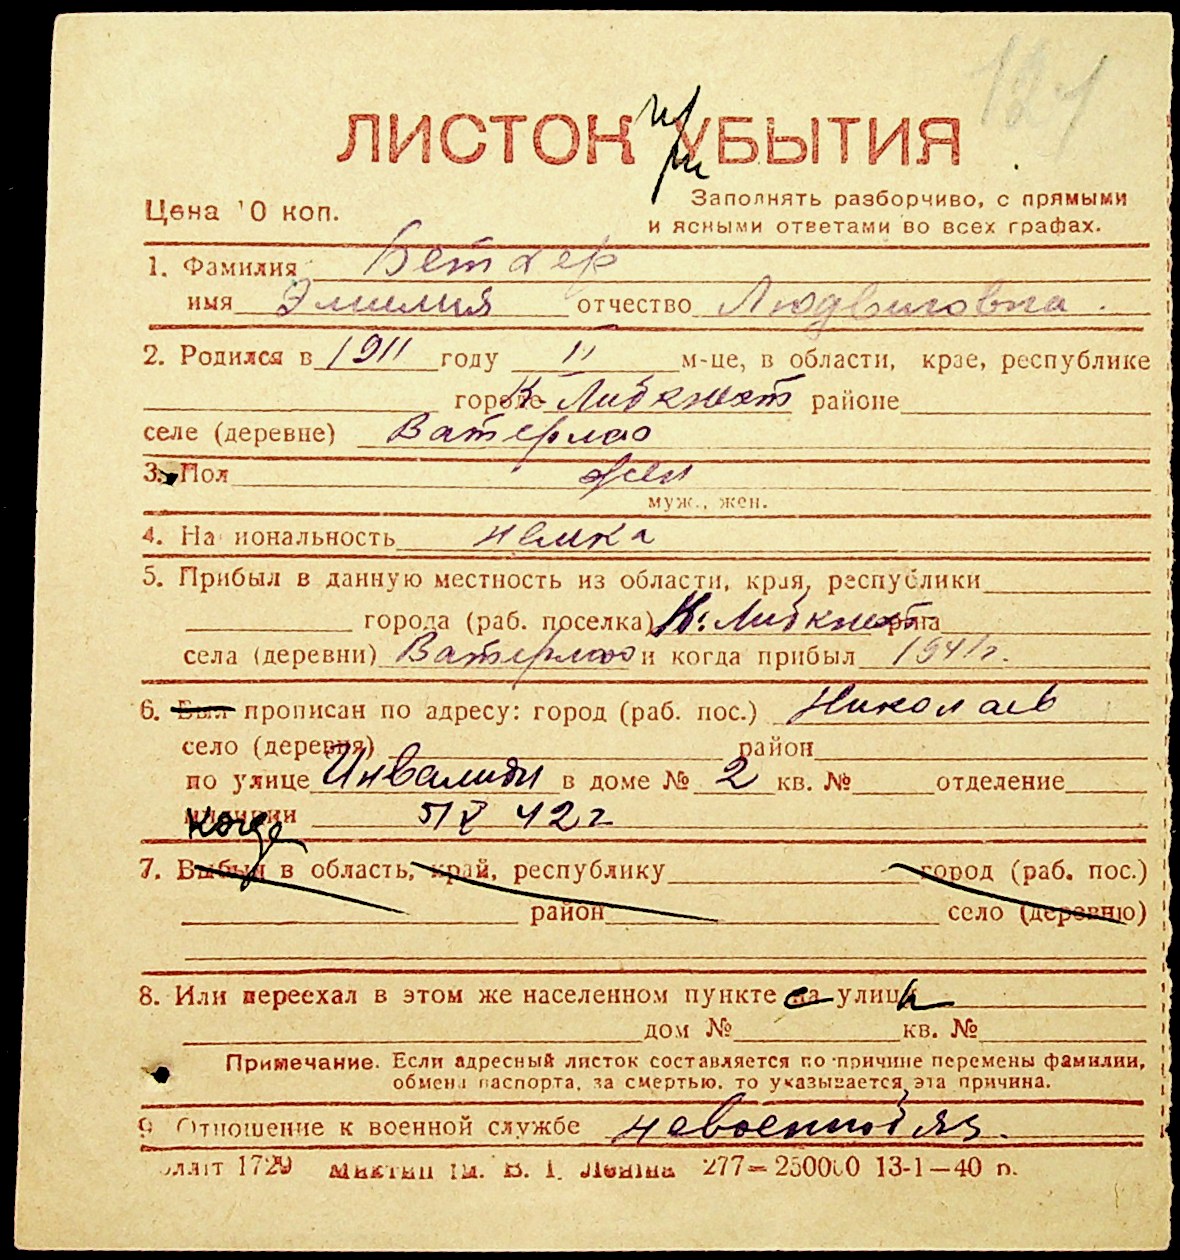 121
ЛИСТОК при УБЫТИЯ
Цена 10 коп.
Заполнять разборчиво, с прямыми
и ясными ответами во всех графах.
1. Фамилия Бетхер
имя Эмилия отчество Людвиговна
2. Родился в 1911 году II м-це, в области, крае, республике
городе К. Либкнехт районе
селе (деревне) Ватерлоо
3. Пол жен
муж., жен.
4. Национальность немка
5. Прибыл в данную местность из области, края, республики
города (раб. поселка) К. Либкнехт
села (деревни) Ватерлоо и когда прибыл 1941 г.
6. Был прописан по адресу: город (раб. пос.) Николаев
село (деревня) район
по улице Инвалидн в доме № 2 кв. № отделение
милиции когда 5/X 42 г
7. Выбыл в область, край, республику город (раб. пос.)
район село (деревню)
8. Или переехал в этом же населенном пункте на с улиц
дом № кв. №
Примечание. Если адресный листок составляется по причине перемены фамилии,
обмена паспорта, за смертью, то указывается эта причина.
9 Отношение к военной службе невоеннообяз.
1729 ім. В. І. Леніна 277—250000 13-1—40 р.